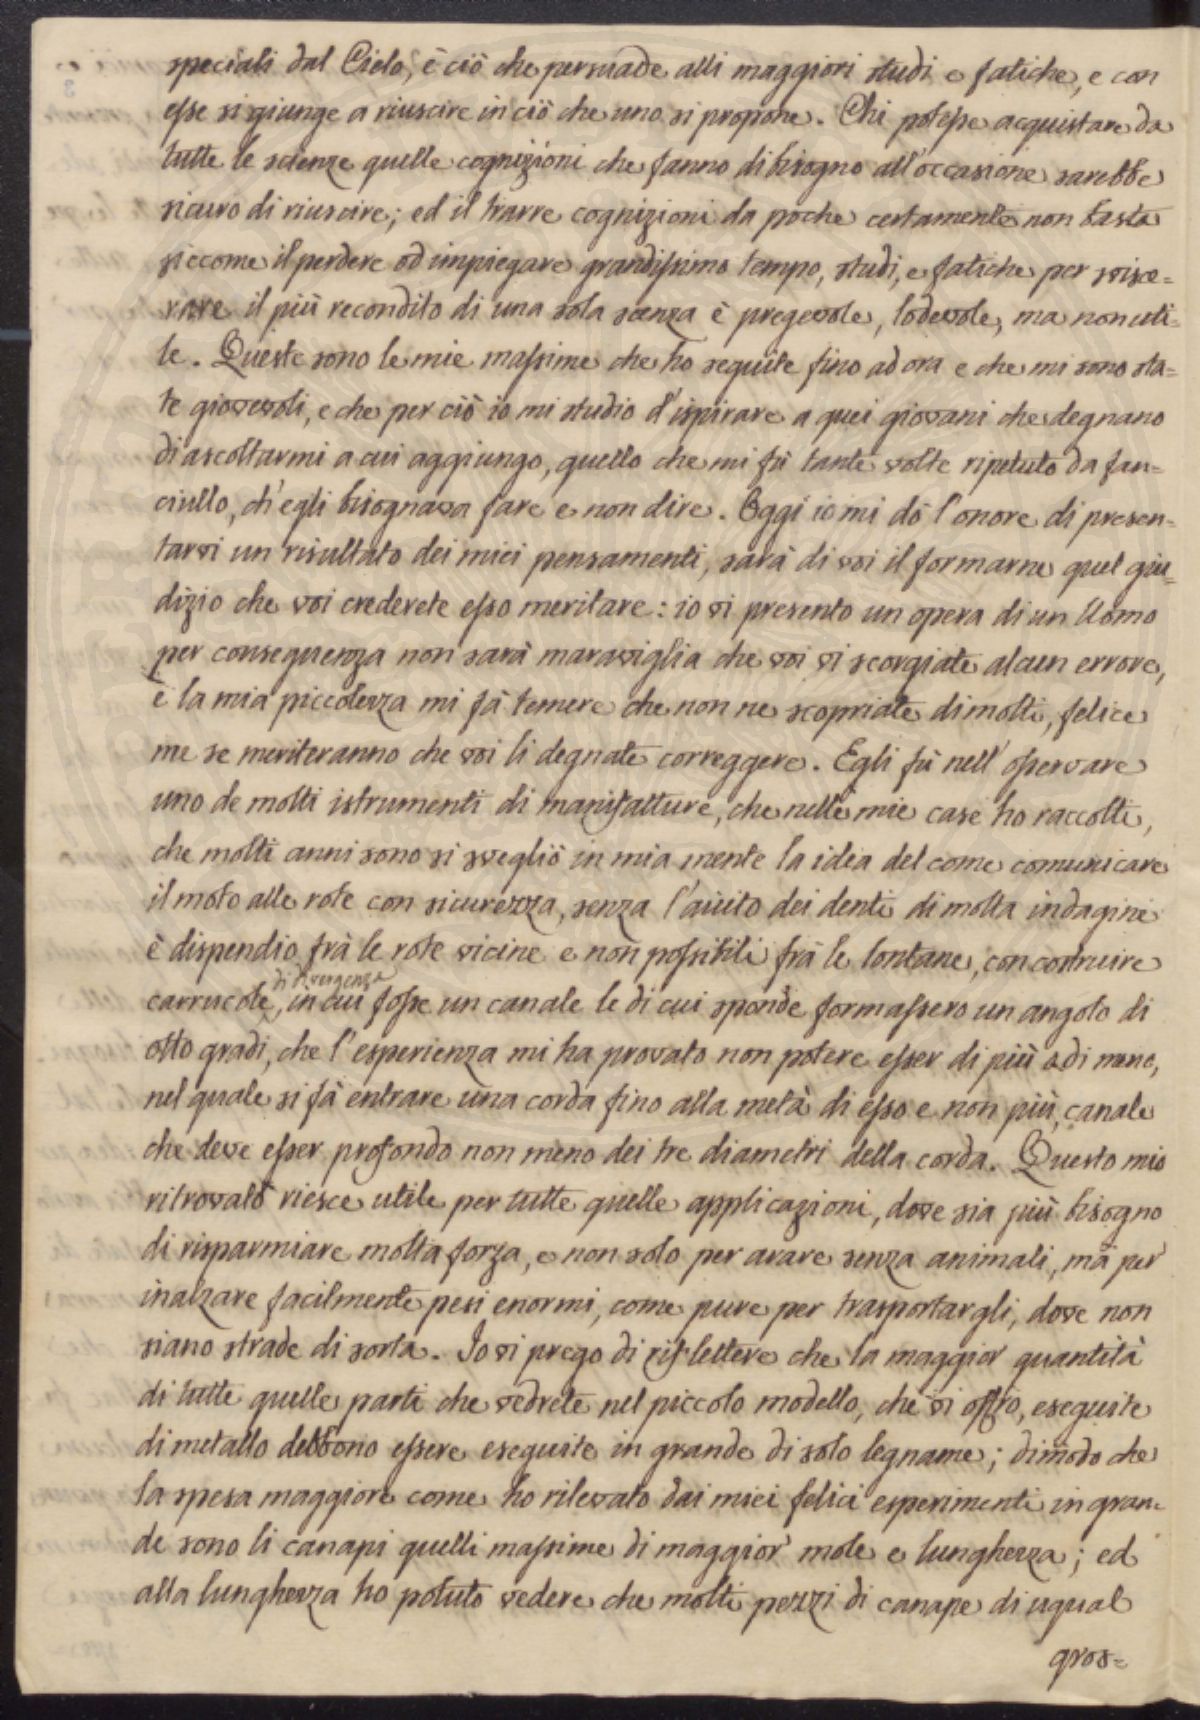 speciali dal Cielo, è ciò che persuade alli maggiori studi e fatiche, e con
esse si giunge a riuscire in ciò che uno si propone. Chi potesse acquistare da
tutte le scienze quelle cognizioni che fanno di bisogno all'occasione sarebbe
sicuro di riuscire; ed il trarre cognizioni da poche certamente non basta
siccome il perdere od impiegare grandissimo tempo, studi, e fatiche per visce=
rare il più recondito di una sola scenza è pregevole, lodevole, ma non uti=
le. Queste sono le mie massime che ho seguite fino ad ora e che mi sono sta=
te giovevoli, e che per ciò io mi studio d'ispirare a quei giovani che degnano
di ascoltarmi a cui aggiungo, quello che mi fù tante volte ripetuto da fan=
ciullo, ch'egli bisognava fare e non dire. Oggi io mi dò l'onore di presen=
tarvi un risultato dei miei pensamenti, sarà di voi il formarne quel giu=
dizio che voi crederete esso meritare: io vi presento un opera di un Uomo
per conseguenza non sarà maraviglia che voi vi scorgiate alcun errore,
è la mia piccolezza mi fà temere che non ne scopriate di molti, felice
me se meriteranno che voi li degnate correggere. Egli fù nell'osservare
uno de molti istrumenti di manifatture, che nelle mie case ho raccolti,
che molti anni sono si svegliò in mia mente la idea del come comunicare
il moto alle rote con sicurezza, senza l'aiuto dei denti di molta indagine
è dispendio frà le rote vicine e non possibili frà le lontane, con costruire
di divergenza
carrucole, in cui fosse un canale le di cui sponde formassero un angolo di
otto gradi, che l'esperienza mi ha provato non potere esser di più o di meno,
nel quale si fà entrare una corda fino alla metà di esso e non più, canale
che deve esser profondo non meno dei tre diametri della corda. Questo mio
ritrovato riesce utile per tutte quelle applicazioni, dove sia più bisogno
di risparmiare molta forza, e non solo per arare senza animali, mà per
inalzare facilmente pesi enormi, come pure per trasportargli, dove non
siano strade di sorta. Io vi prego di riflettere che la maggior quantità
di tutte quelle parti che vedrete nel piccolo modello, che vi offro, eseguite
di metallo debbono essere eseguite in grande di solo legname; dimodo che
la spesa maggiore come ho rilevato dai miei felici esperimenti in gran=
de sono li canapi quelli massime di maggior mole e lunghezza; ed
alla lunghezza ho potuto vedere che molti pezzi di canape di ugual
gros=